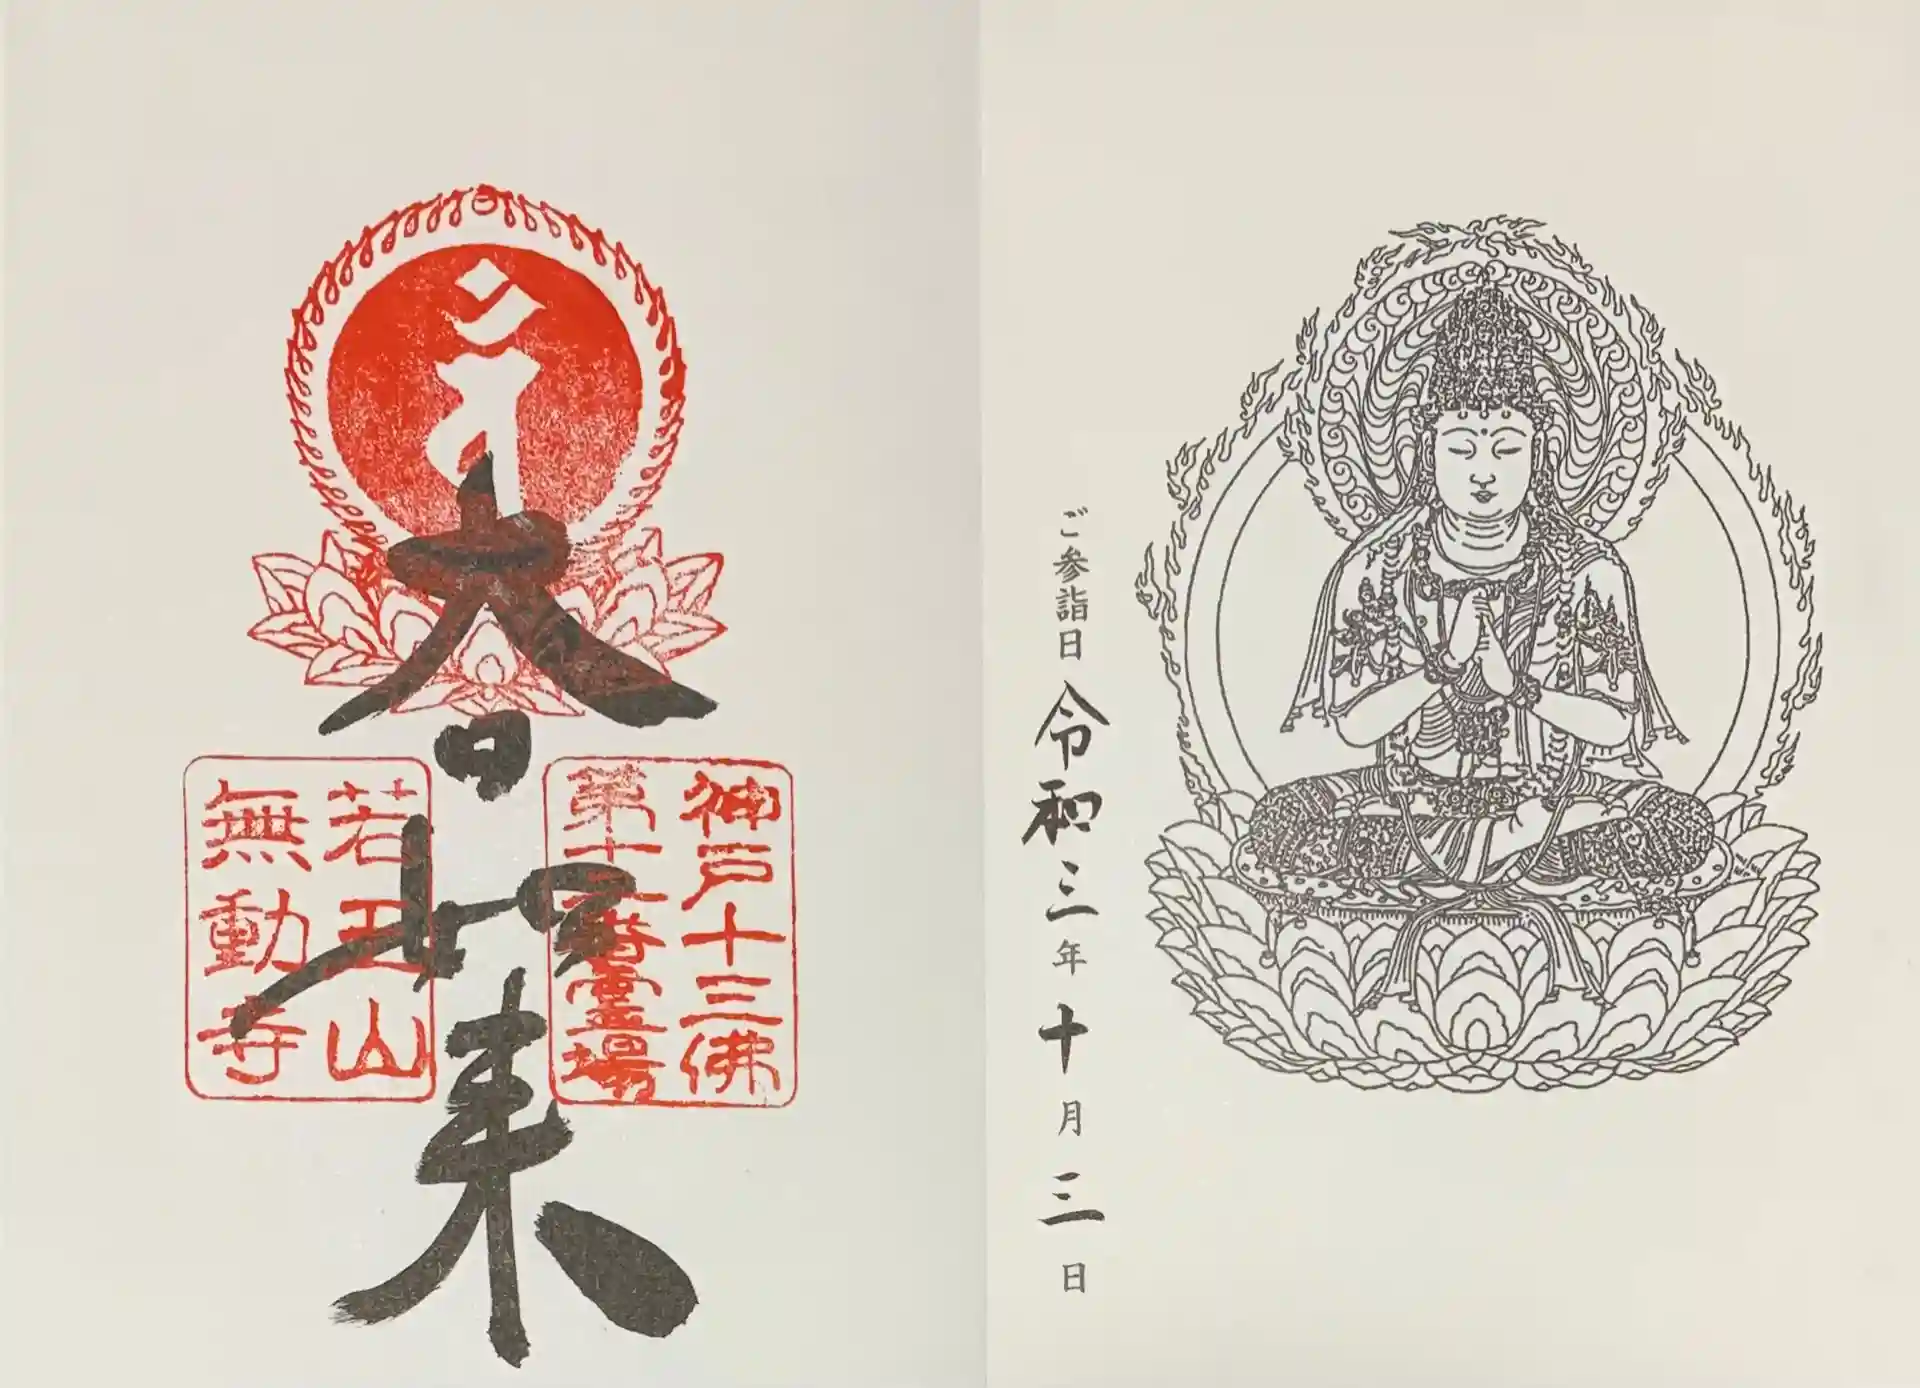 ご参詣日 令和三年十月三日
神戸十三佛
第十二番霊場
大日如来
若王山
無動寺